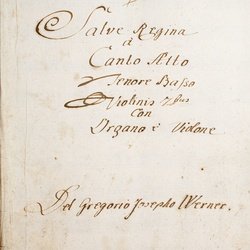 Salve Regina
à
Canto Alto
Tenore Basso
Violinis 2bus
con
Organo è Violone
Del Gregorio Josepho Werner.